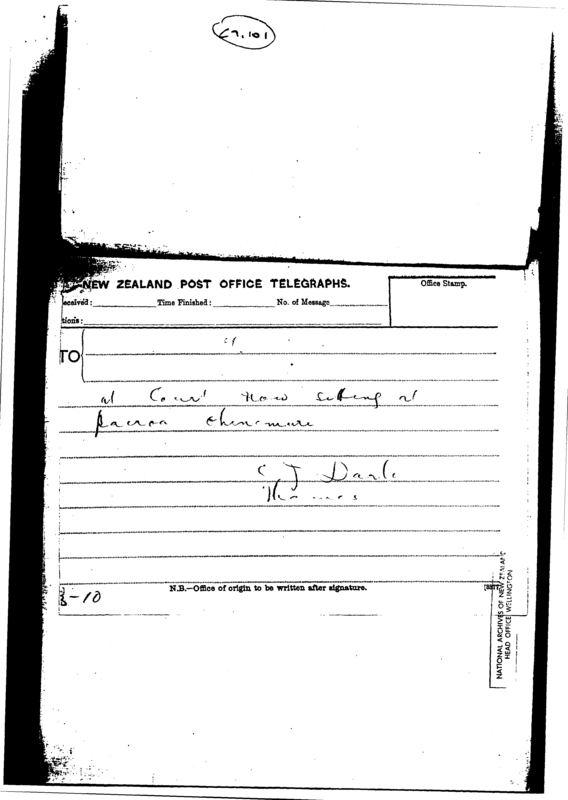 NEW ZEALAND POST OFFICE TELEGRAPHS.
Office Stamp.
eceived: Time Finished: No. of Message
tions:
TO
at Court now sitting at
Paeroa Ohinemuri
C J
Thames
N.B.—Office of origin to be written after signature.
-10
NATIONAL ARCHIVES OF NEW ZEALAND
HEAD OFFICE WELLINGTON